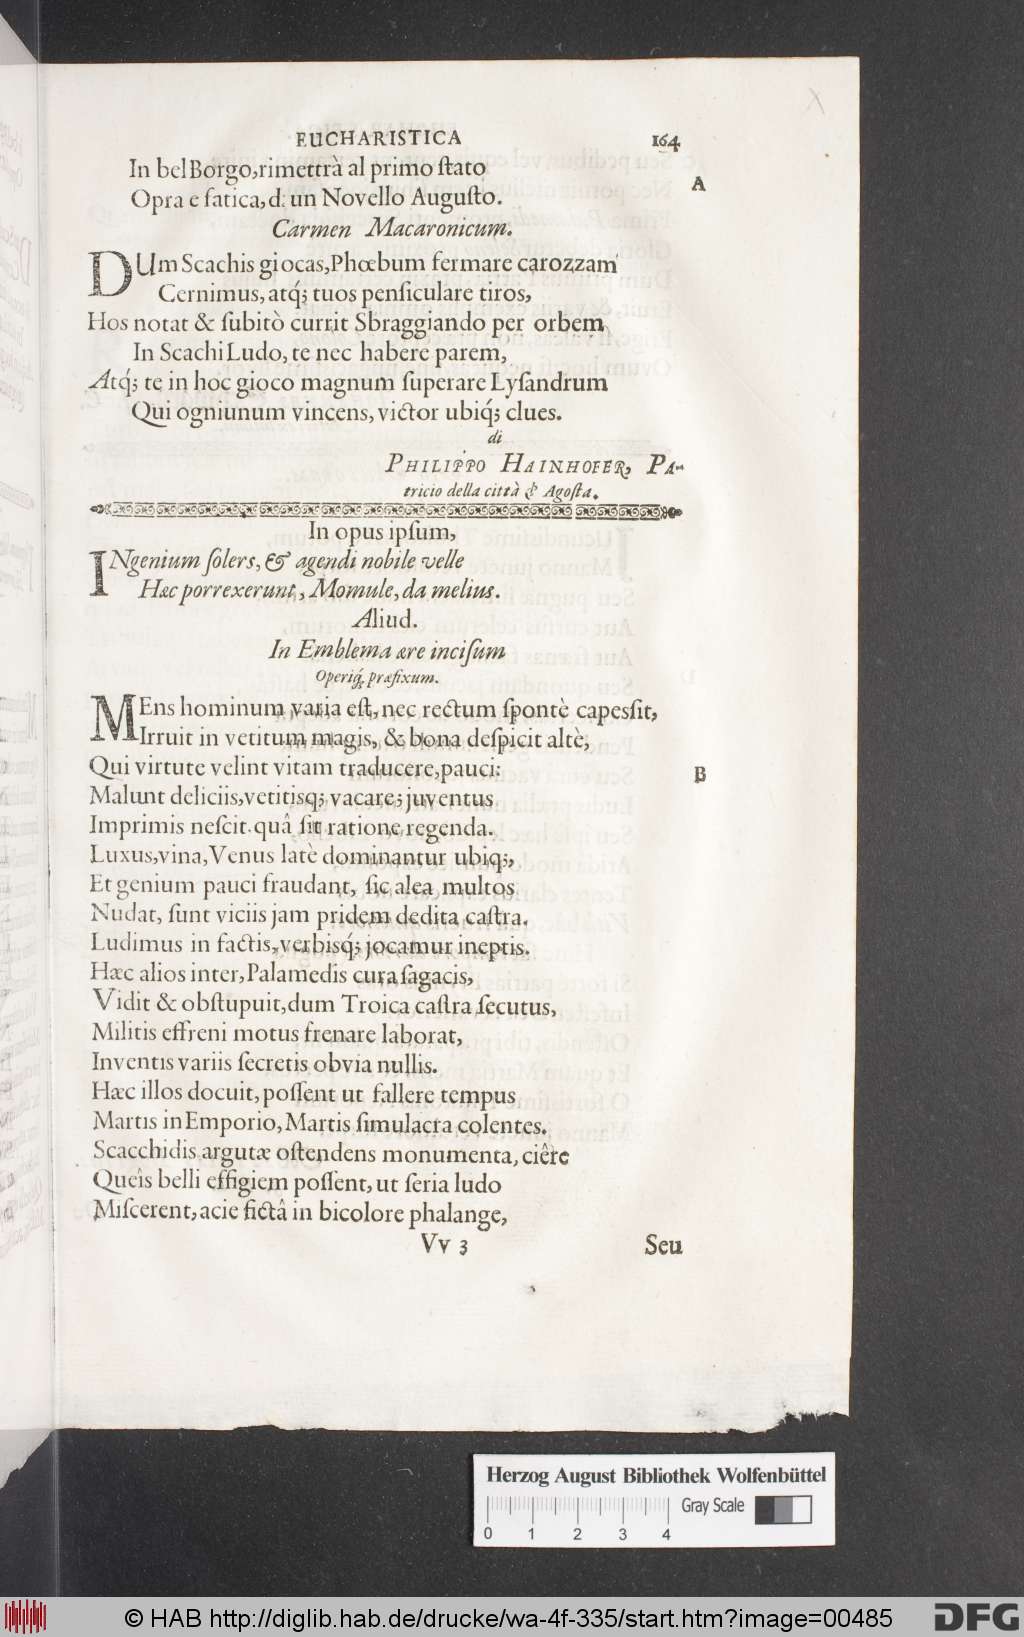 EUCHARISTICA 164
In bel Borgo,rimettrà al primo ſtato
A
Opra e fatica,d: un Novello Auguſto.
Carmen Macaronicum.
DUm Scachis giocas,Phœbum fermare carozzam
Cernimus, atq́; tuos penſiculare tiros,
Hos notat & ſubitò currit Sbraggiando per orbem,
In Scachi Ludo, te nec habere parem,
Atq́; te in hoc gioco magnum ſuperare Lyſandrum
Qui ogniunum vincens, victor ubiq́; clues.
di
PHILIPPO HAINHOFER, PA-
tricio della città d' Agoſta.
In opus ipſum,
INgenium ſolers, & agendi nobile velle
Hæc porrexerunt, Momule, da melius.
Aliud.
In Emblema ære inciſum
Operiq́; præfixum.
MEns hominum varia eſt, nec rectum ſpontè capeſſit,
Irruit in vetitum magis, & bona deſpicit altè,
Qui virtute velint vitam traducere, pauci:
B
Malunt deliciis,vetitisq; vacare; juventus
Imprimis neſcit quâ ſit ratione regenda.
Luxus,vina,Venus latè dominantur ubiq;,
Et genium pauci fraudant, ſic alea multos
Nudat, ſunt viciis jam pridem dedita caſtra.
Ludimus in factis, verbisq́; jocamur ineptis.
Hæc alios inter, Palamedis cura ſagacis,
Vidit & obſtupuit,dum Troica caſtra ſecutus,
Militis effreni motus frenare laborat,
Inventis variis ſecretis obvia nullis.
Hæc illos docuit, poſſent ut fallere tempus
Martis in Emporio, Martis ſimulacra colentes.
Scacchidis argutæ oſtendens monumenta, ciêre
Queîs belli effigiem poſſent, ut ſeria ludo
Miſcerent, acie fictâ in bicolore phalange,
Vv 3 Seu
Herzog August Bibliothek Wolfenbüttel
Gray Scale
0 1 2 3 4
© HAB http://diglib.hab.de/drucke/wa-4f-335/start.htm?image=00485 DFG